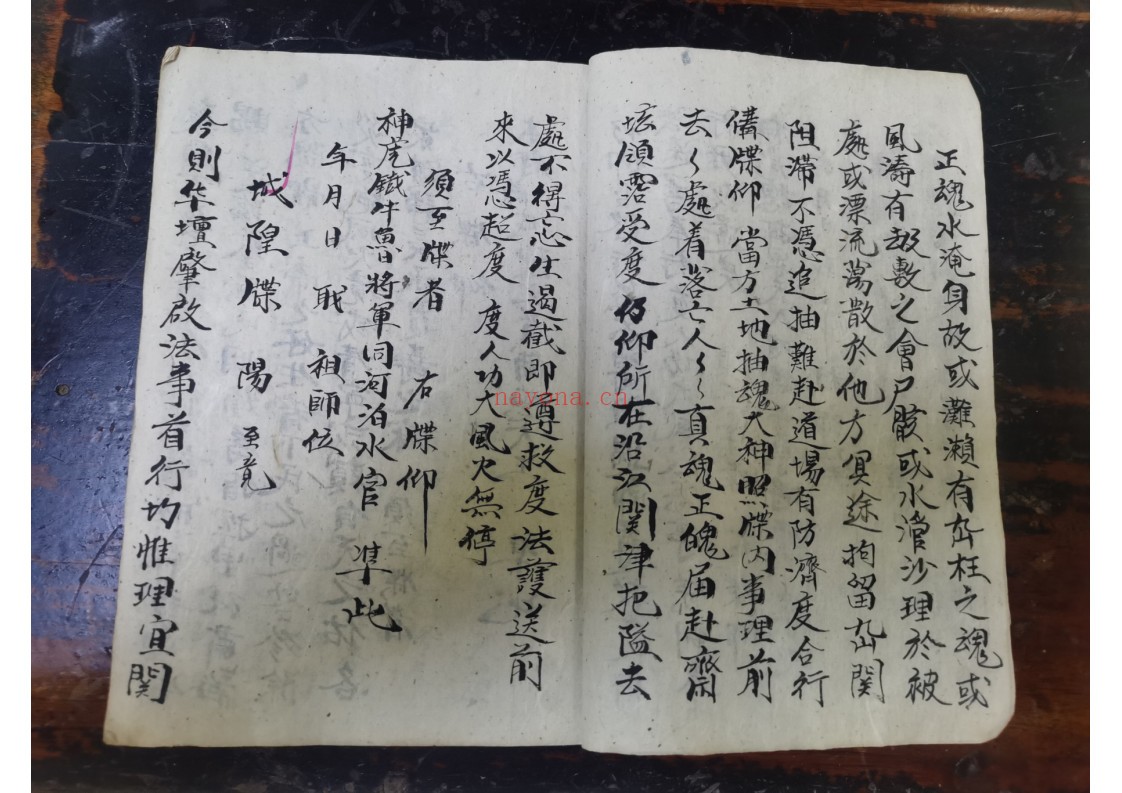 正魂水淹身故或灘瀨有㐫枉之魂或
風濤有刼數之會尸骸或水濸沙理於被
處或漂流萬散於他方冥途拘留㐫関
阻滞不憑追抽難赴道場有防濟度合行
僃牒仰 當方土地抽魂大神照牒内事理前
去〻處着落亡人〻〻真魂正魄届赴齋
坛領霑受度 仍仰所在沿江関津把隘去
處不得忘生遏截即遵救度 法護送前
來以憑超度 度人功大風火無停
須至牒者 右牒仰
神虎鐵牛魯將軍同河泊水官 準此
年月日戢 祖師位
城隍牒 陽 至竟
今則华壇肇啟法事首行圴惟理宜関
nayona.cn